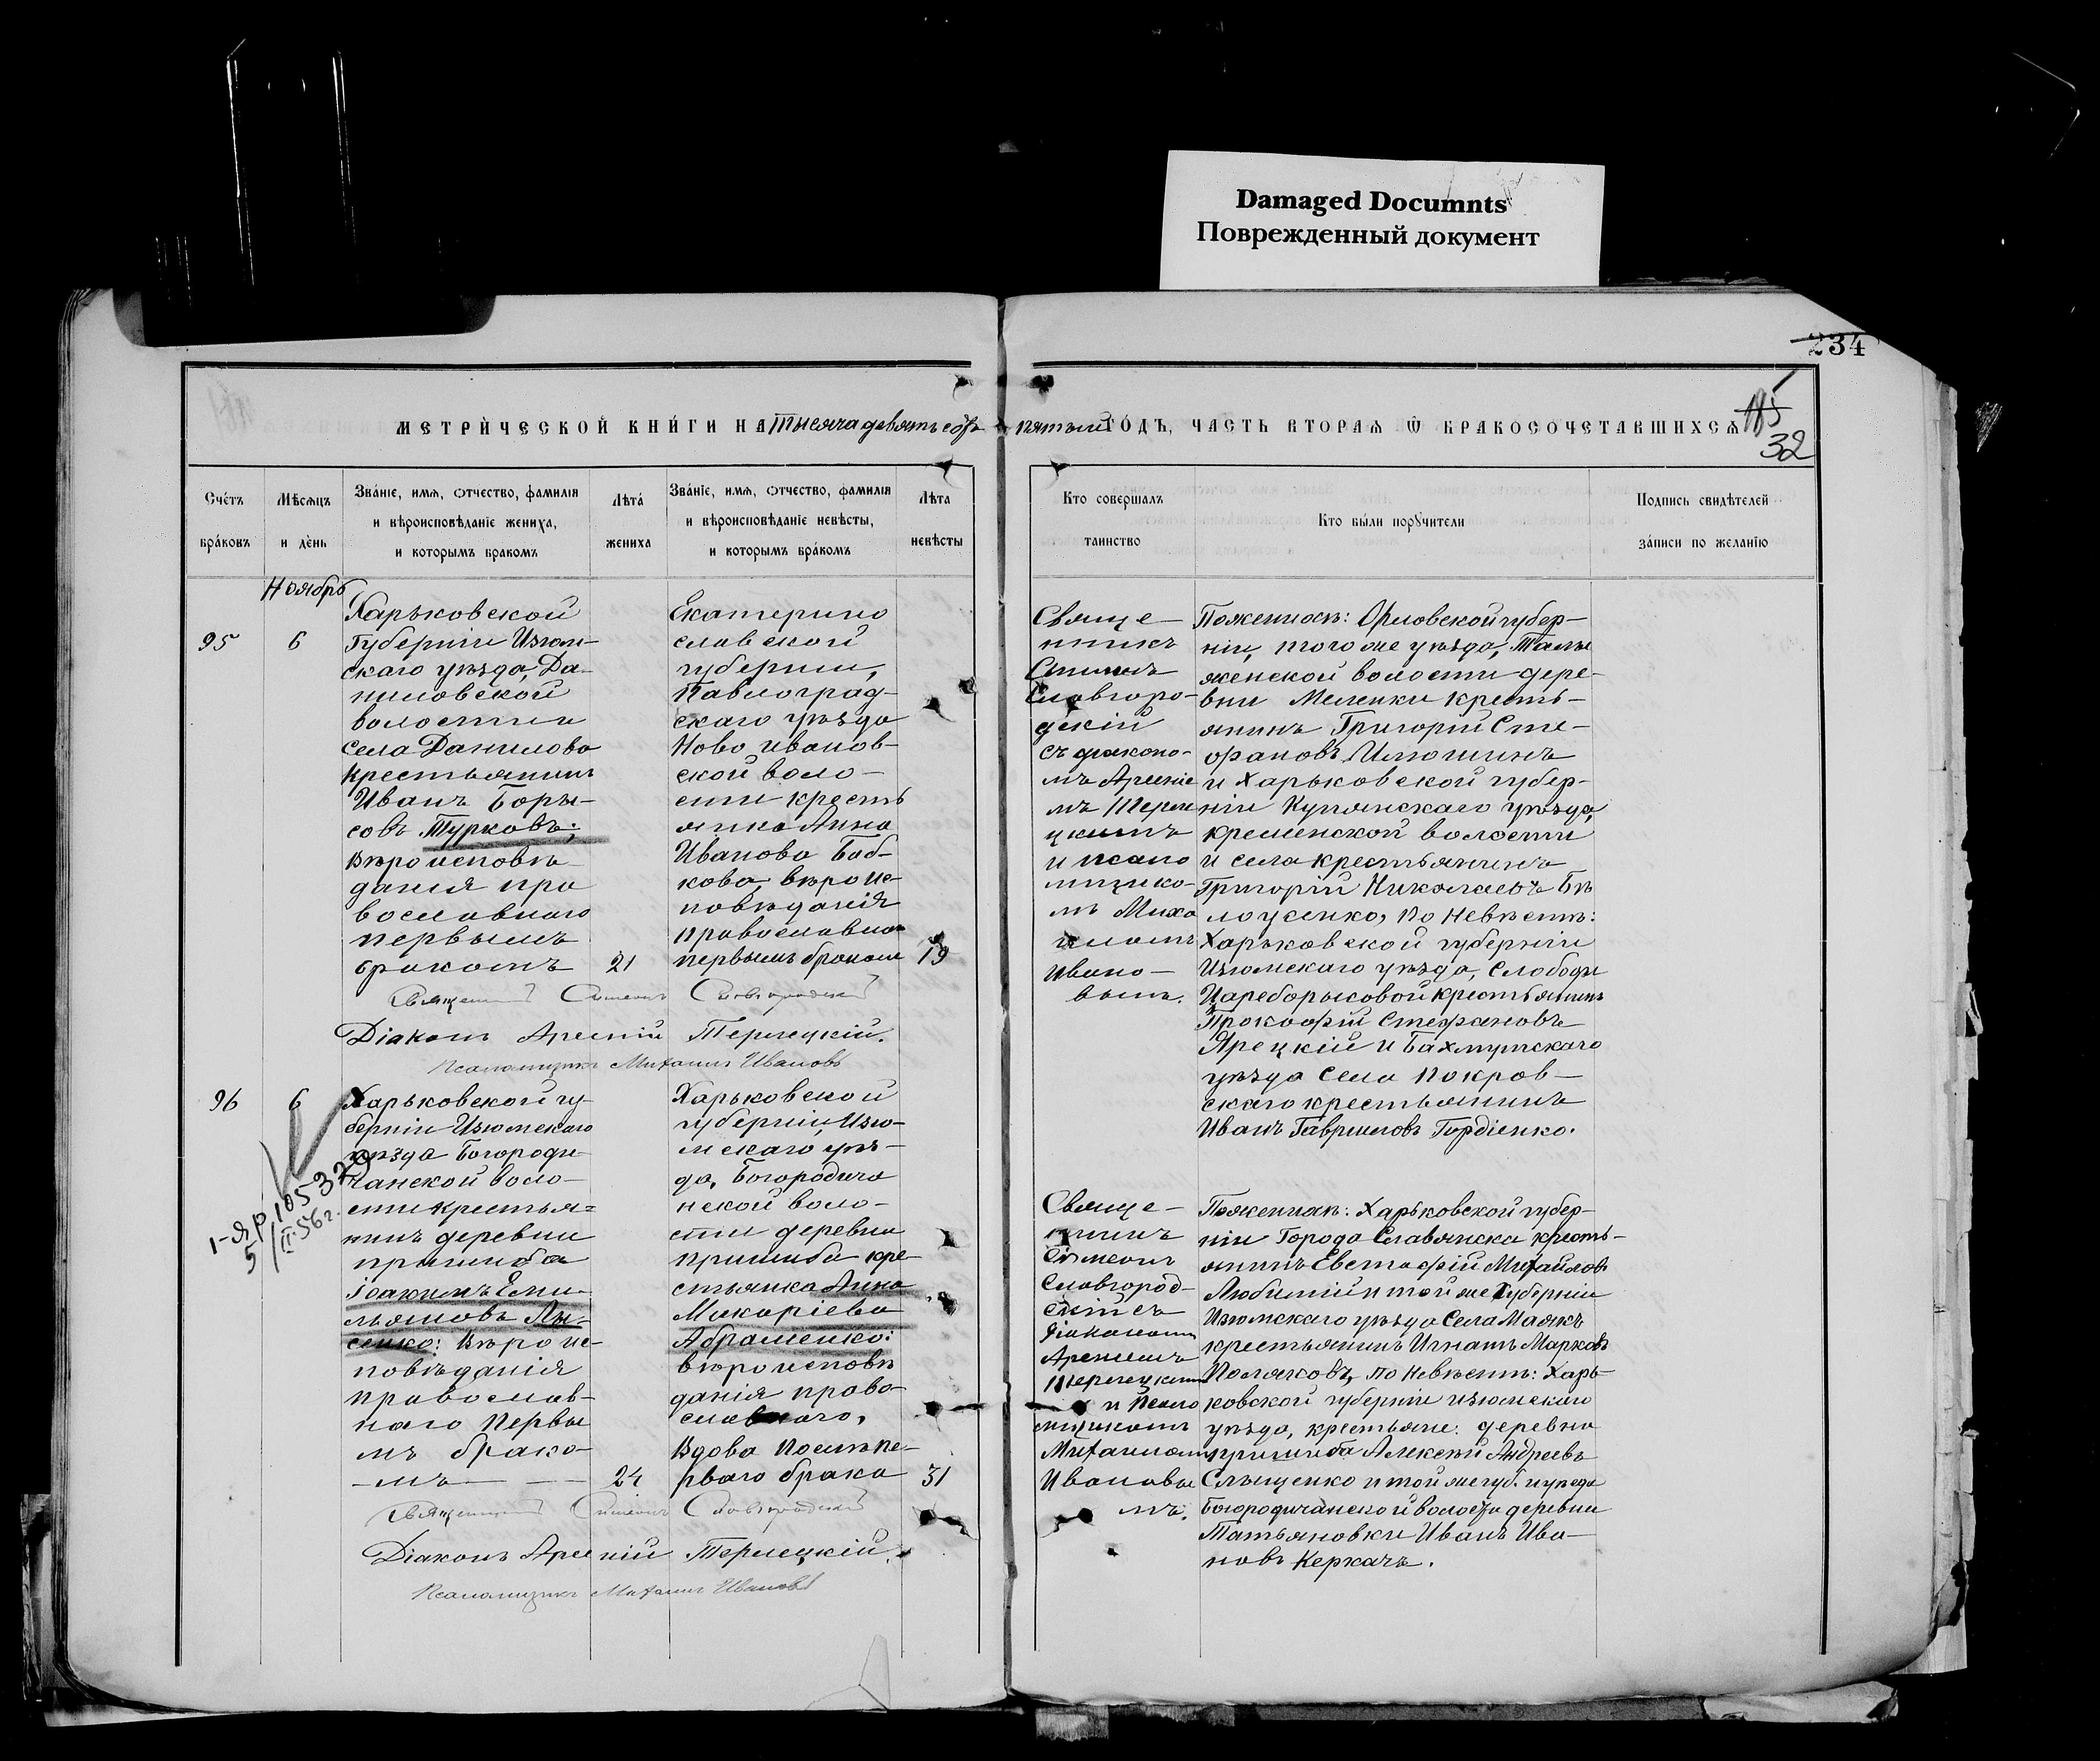 Damaged Documnts
Поврежденный документ
234
МЕТРИЧЕСКОЙ КНИГИ НА тысяча девятьсотъ пятый ГОДЪ, ЧАСТЬ ВТОРАЯ Ѿ БРАКОСОЧЕТАВШИХСЯ
115
32
Счетъ браковъ
Мѣсяцъ и день
Званіе, имя, отчество, фамилія и вѣроисповѣданіе жениха, и которымъ бракомъ
Лѣта жениха
Званіе, имя, отчество, фамилія и вѣроисповѣданіе невѣсты, и которымъ бракомъ
Лѣта невѣсты
Кто совершалъ таинство
Кто были поручители
Подпись свидѣтелей записи по желанію
Ноябрь
95
6
Харьковской
Губерніи Изюм-
скаго уѣзда, Да-
ниловской
волости
села Данилова
крестьянинъ
Иванъ Боры-
совъ Турковъ;
вѣроисповѣ-
данія пра
вославнаго
первымъ
бракомъ
21
Екатерино
славской
губерніи,
Павлоград-
скаго уѣзда
Ново ивановъ-
ской воло-
сти кресть
янка Анна
Иванова Боб-
кова, вѣроис-
повѣданія
православна
первымъ бракомъ
19
Священникъ Симеонъ Славгородскій
Діаконъ Арсеній Терлецкій.
Псаломщикъ Михаилъ Ивановъ
Свяще-
нникъ
Симеонъ
Славгоро-
дскій
съ діаконо-
мъ Арсеніе
мъ Терле
цкимъ
и псало
мщико-
мъ Миха
иломъ
Ивано-
вымъ.
По женихѣ: Орловской губер-
ніи, того же уѣзда,
женской волости дере-
вни Меленки кресть-
янинъ Григорій Сте-
фановъ Илюшинъ
и Харьковской губер-
ніи Купянскаго уѣзда,
кременской волости
и села крестьянинъ
Григорій Николаевъ Бѣ
лоусенко, по невѣстѣ:
Харьковской губерніи
Изюмскаго уѣзда, слободы
Цареборисовой крестьянинъ
Прокофій Стефановъ
Ярецкій и Бахмутскаго
уѣзда села Покров-
скаго крестьянинъ
Иванъ Гавриловъ Гордіенко.
96
6
Харьковской гу-
берніи Изюмскаго
уѣзда Богороди-
чанской воло-
сти крестья-
нинъ деревни
пришиба
Іоакимъ Еми-
льяновъ Лы-
сенко: вѣроис-
повѣданія
православ-
наго первы
мъ брако-
-мъ-
24
1-ЯР 105329
5/II-56г.
Харьковской
губерніи, Изю-
мскаго уѣз-
да, Богородича
нской воло-
сти деревни
пришиба кре
стьянка Анна
Макаріева
Абраменко:
вѣроисповѣ
данія право-
славнаго,
вдова послѣ пе-
рваго брака
31
Священникъ Симеонъ Славгородскій
Діаконъ Арсеній Терлецкій.
Псаломщикъ Михаилъ Ивановъ
Свяще-
нникъ
Симеонъ
Славгород-
скій съ
діакономъ
Арсеніемъ
Терлецкимъ
и псало
мщикомъ
Михаиломъ
Ивановы
мъ.
По женихѣ: Харьковской губер-
ніи Города Славянска кресть-
янинъ Евстафій Михайловъ
Любимій и той же губерніи
Изюмскаго уѣзда Села Маякъ
крестьянинъ Игнатъ Марковъ
Поляковъ, по невѣстѣ: Харь-
ковской губерніи изюмскаго
уѣзда, крестьяне: деревни
пришиба Алексѣй Андреевъ
Слющенко и той же губ. и уѣзда
Богородичанской волости деревни
Татьяновки Иванъ Ива-
новъ Керкачъ.